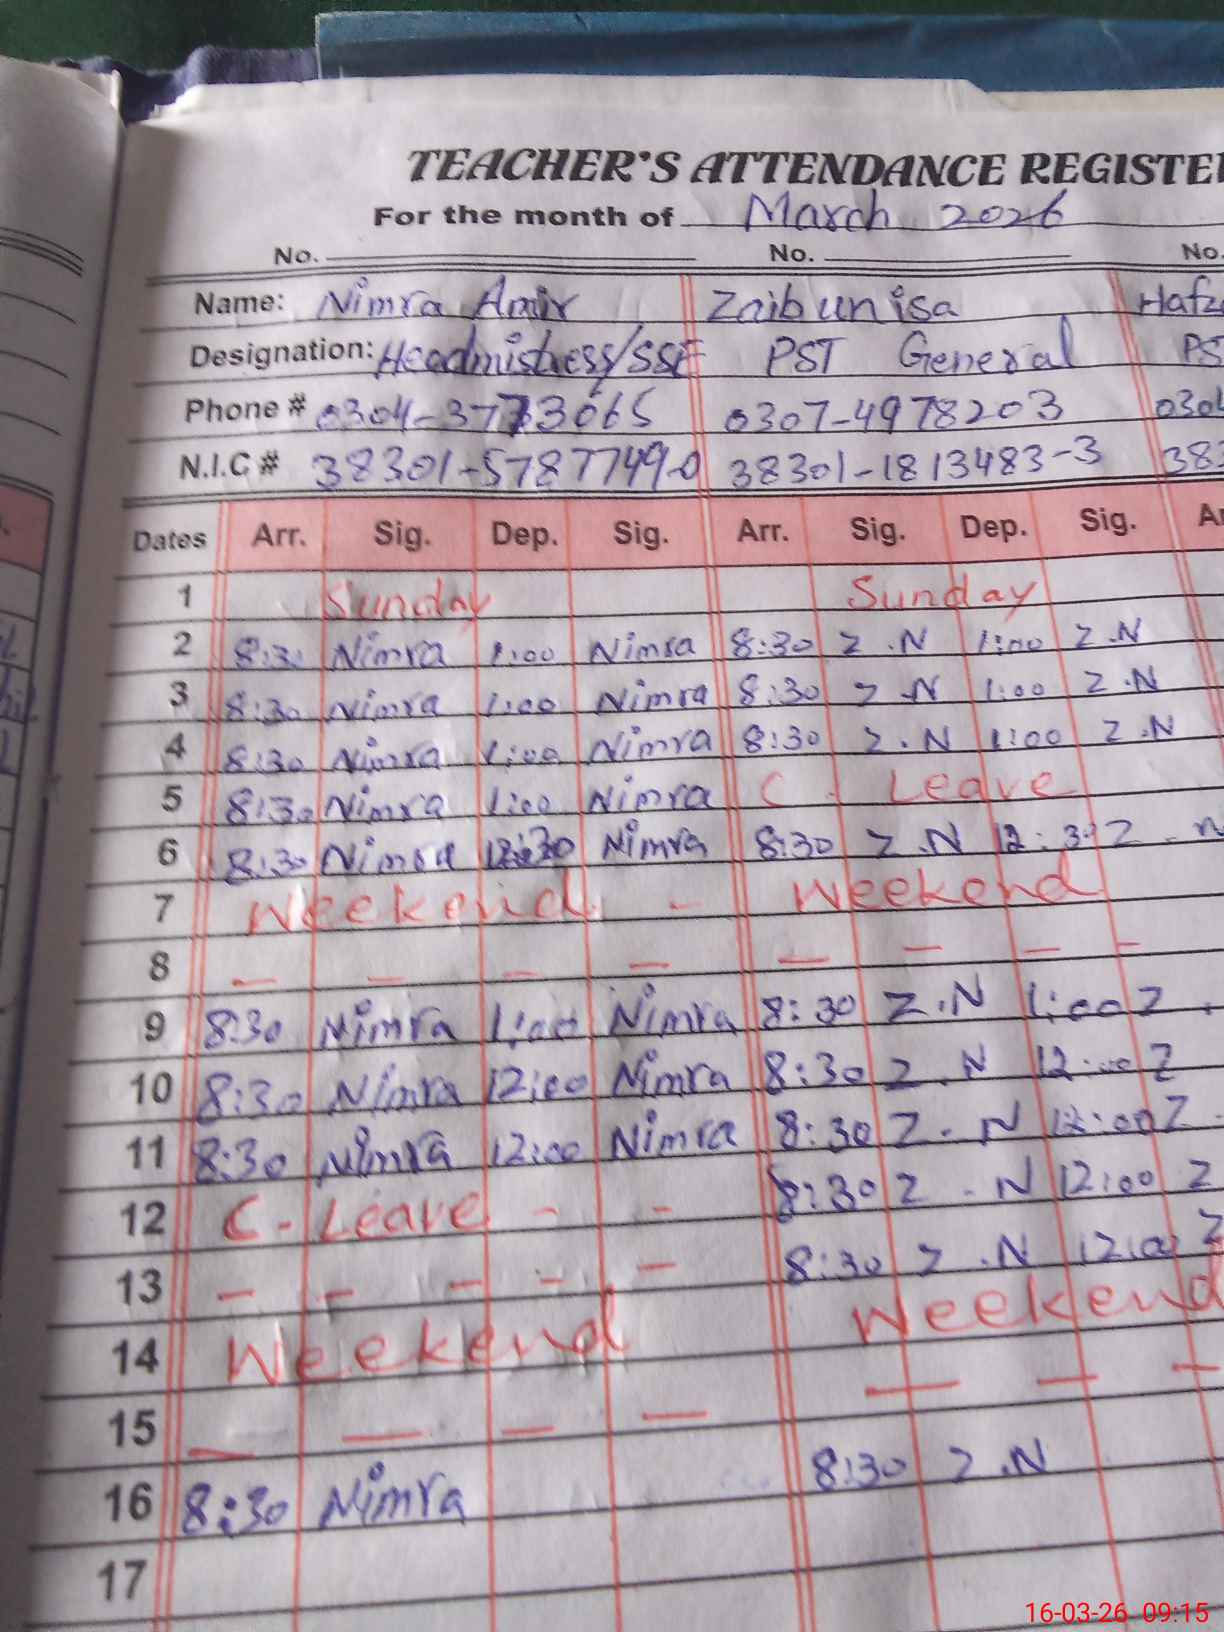 TEACHER'S ATTENDANCE REGISTE
For the month of March 2026
No. No. No.
Name: Nimra Amir Zaibunisa Hafz
Designation: Headmistress/SSE PST General PS
Phone # 0304-3773065 0307-4978203 030
N.I.C # 38301-5787749-0 38301-1813483-3 38
Dates Arr. Sig. Dep. Sig. Arr. Sig. Dep. Sig. Ar
1 Sunday Sunday
2 8:30 Nimra 1:00 Nimra 8:30 Z.N 1:00 Z.N
3 8:30 Nimra 1:00 Nimra 8:30 Z.N 1:00 Z.N
4 8:30 Nimra 1:00 Nimra 8:30 Z.N 1:00 Z.N
5 8:30 Nimra 1:00 Nimra C. Leave
6 8:30 Nimra 12:30 Nimra 8:30 Z.N 12:30 Z.N
7 Weekend - Weekend
8 — — — — — — — —
9 8:30 Nimra 1:00 Nimra 8:30 Z.N 1:00 Z.
10 8:30 Nimra 12:00 Nimra 8:30 Z.N 12:00 Z
11 8:30 Nimra 12:00 Nimra 8:30 Z.N 12:00 Z.
12 C-Leave - - 8:30 Z.N 12:00 Z
13 — — — — — 8:30 Z.N 12:00 Z
14 Weekend Weekend
15 — — — — — — —
16 8:30 Nimra 8:30 Z.N
17
16-03-26 09:15